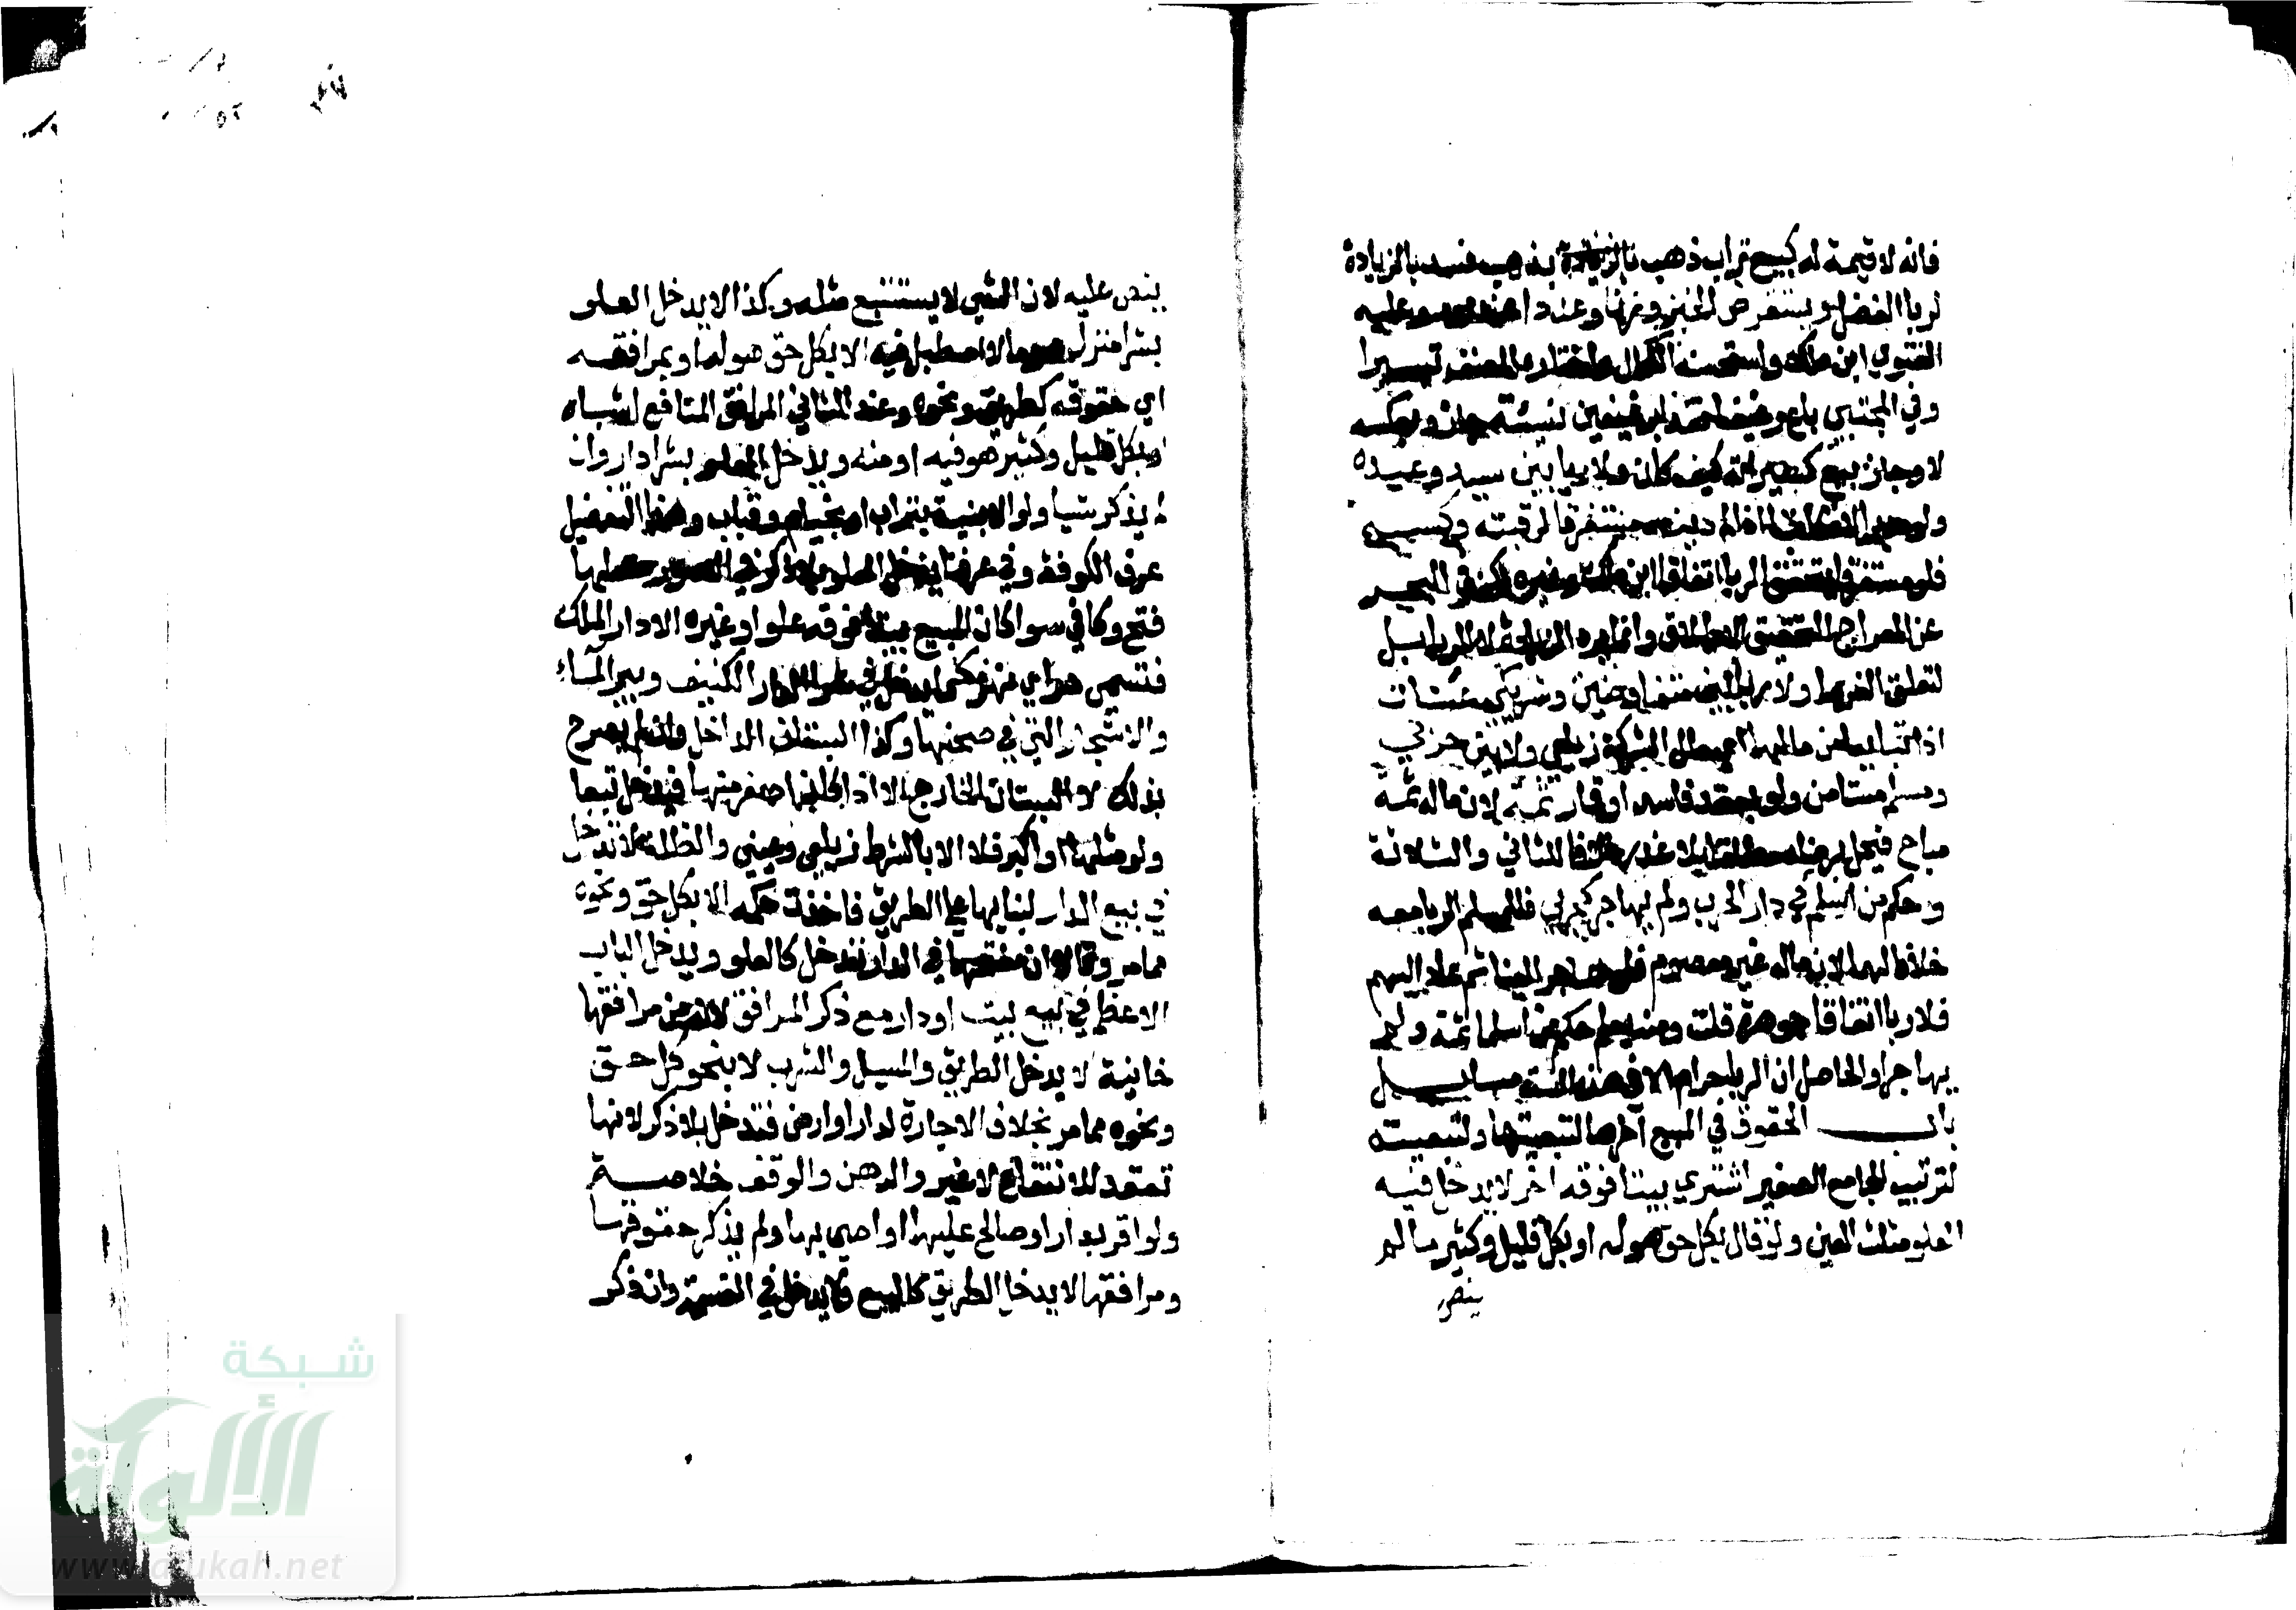 فانه لا قيمة له كبيع تراب ذهب بالزيادة بذهب فسد بالزيادة
لربا الفضل ويستقرض الخبز وزنا وعند وعليه
الفتوي ابن ملك واستحسنه الكمال واختاره المصنف تيسيرا
وفي المجتبي باع رغيفا نقدا برغيفين نسيئة جاز وبعكسه
لا وجاز بيع كسيراته كيف كان ولا ربا بين سيد وعبده
ولو مدبرا اذا لم دينه مستغرقا لرقبته وكسبه
فلو مستغرقا يتحقق الربا اتفاقا ابن ملك وغيره لكن في البحر
عن المعراج التحقيق الاطلاق وانما يرد الزيادة لا للربا بل
لتعلق الغرما ولا ربا بين متفاوضين وشريكي عنان
اذا تبايعا من مالهما اي مال الشركة زيلعي ولا بين حربي
ومسلم مستامن ولو بعقد فاسد او قمار ثمة لان ماله ثمة
مباح فيحل برضاه مطلقا بلا غدر خلافا للثاني والثلاثة
وحكم من اسلم في دار الحرب ولم يهاجر كحربي فللمسلم الربا معه
خلافا لهما لان ماله غير معصوم فلو هاجر الينا ثم عاد اليهم
فلا ربا اتفاقا جوهرة قلت ومنه يعلم حكم من اسلما ثمة ولم
يهاجرا والحاصل ان الربا حرام الا في هذه الست مسايل
باب الحقوق في البيع اخرها لتبعيتها ولتبعيته
لترتيب الجامع الصغير اشتري بيتا فوقه اخر لا يدخل فيه
العلو مثلث العين ولو قال بكل حق هو له او بكل قليل وكثير ما لم
ينص
ينص عليه لان الشي لا يستتبع مثله وكذا لا يدخل العلو
بشرا منزل هو ما لا اصطبل فيه الا بكل حق هو له او بمرافقه
اي حقوقه كطريق ونحوه وعند الثاني المرافق المنافع اشباه
او بكل قليل وكثير هو فيه او منه ويدخل العلو بشرا دار وان
لم يذكر شيا ولو الابنية بتراب او بخيام وقباب وهذا التفصيل
عرف الكوفة وفي عرفنا يدخل العلو بلا ذكر في الصور كلها
فتح وكافي سوا كان المبيع بيتا فوقه علو او غيره الا دار الملك
فتسمي سراي نهر كما يدخل في شرا الدار الكنيف وبير الماء
والاشجار التي في صحنها وكذا البستان الداخل وان لم يصرح
بذلك لا البستان الخارج الا اذا كان اصغر منها فيدخل تبعا
ولو مثلها او اكبر فلا الا بالشرط زيلعي وعيني والظلة لا تدخل
في بيع الدار لبنايها علي الطريق فاخذت حكمه الا بكل حق ونحوه
مما مر وقالا ان مفتحها في الدار تدخل كالعلو ويدخل الباب
الاعظم في بيع بيت او دار مع ذكر المرافق لانه من مرافقها
خانية لا يدخل الطريق والمسيل والشرب لا بنحو كل حق
ونحوه مما مر بخلاف الاجارة لدار او ارض فتدخل بلا ذكر لانها
تعقد للانتفاع لا غير والرهن والوقف خلاصة
ولو اقر بدار او صالح عليها او اوصي بها ولم يذكر حقوقها
ومرافقها لا يدخل الطريق كالبيع ولا يدخل في القسمة وان ذكر
شبكة
الألوكة
www.alukah.net